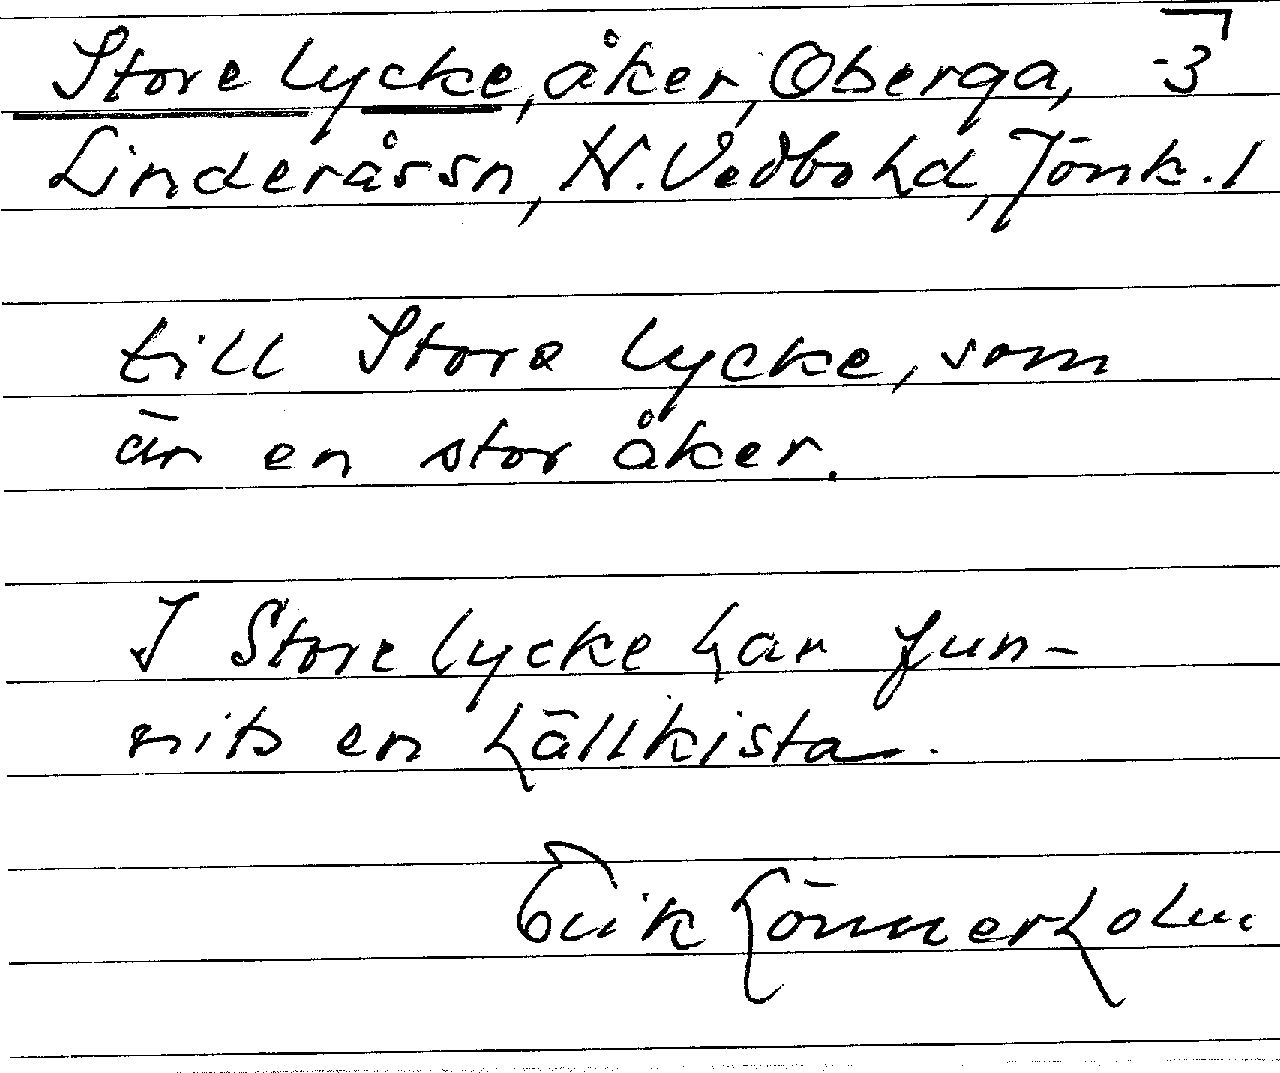 Store lycke, åker, Oberga, -3
Linderås sn, N. Vedbo hd, Jönk. l
till Store lycke, som
är en stor åker.
I Store lycke har fun-
nits en hällkista.
Erik Lönnerholm